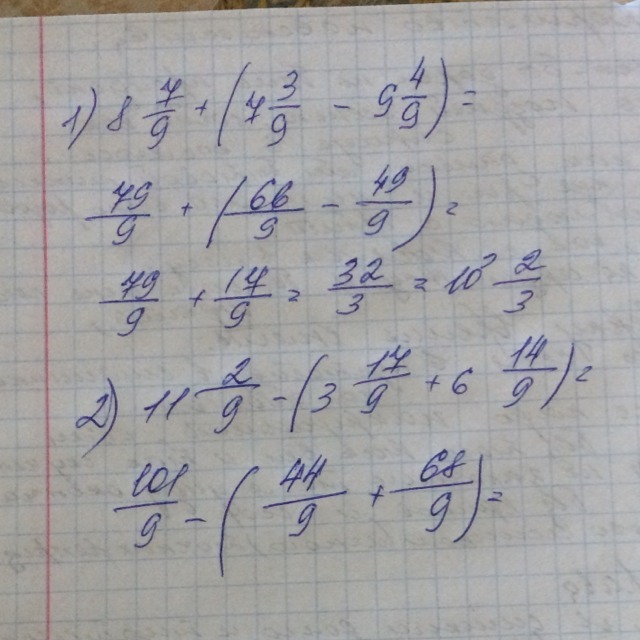 1) 8 7/9 + (7 3/9 - 9 4/9) =
79/9 + (66/9 - 49/9) =
79/9 + 17/9 = 32/3 = 10 2/3
2) 11 2/9 - (3 17/9 + 6 14/9) =
101/9 - (44/9 + 68/9) =